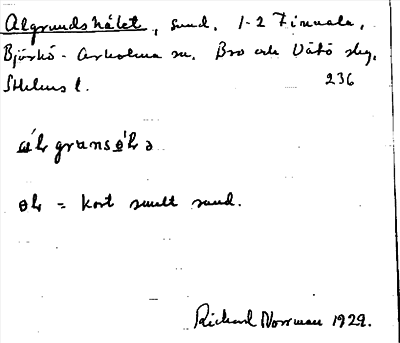 Algrundshålet, sund. 1-2 Finnala,
Björkö-Arholma sn. Bro och Vätö skg.
Sthlms l. 236
grunsø̄
= kort smalt sund.
Richard Norrman 1929.